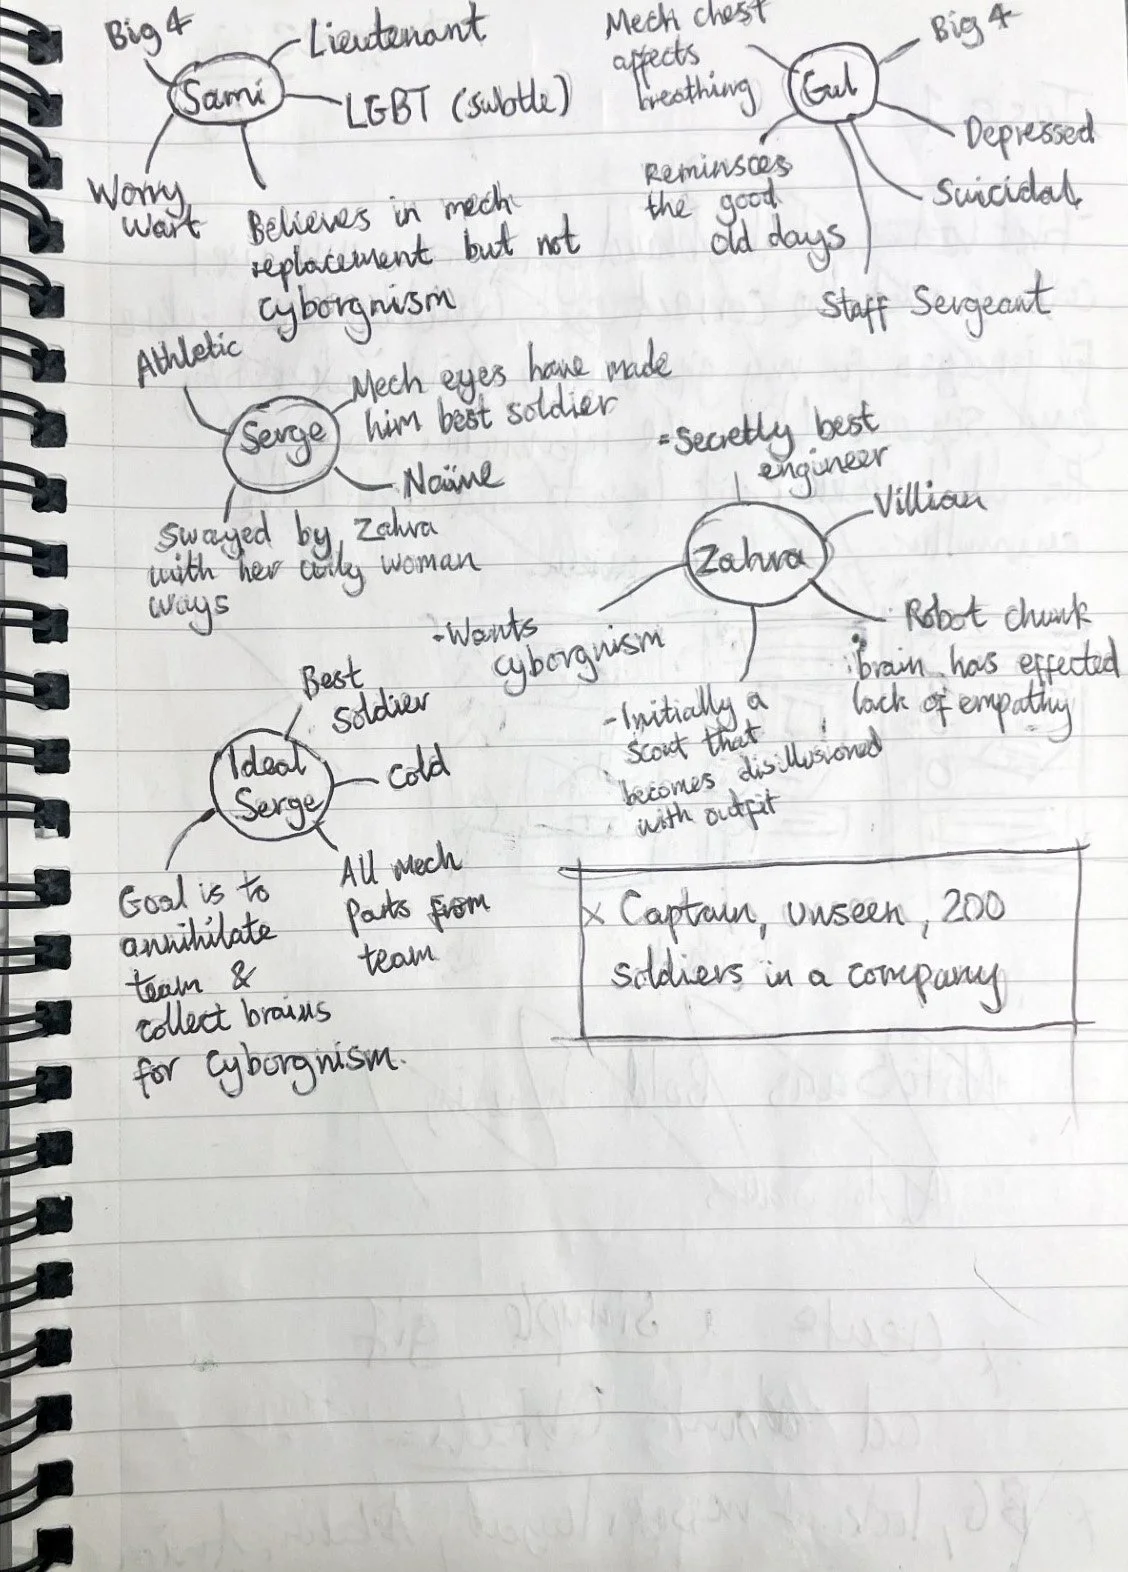 Big 4
Sami
Lieutenant
LGBT (subtle)
Worry
wart
Believes in mech
replacement but not
cyborgnism
Mech chest
affects
breathing
Gul
Big 4
Depressed
Suicidal
Reminsces
the good
old days
Staff Sergeant
Athletic
Serge
Mech eyes have made
him best soldier
Naïve
Swayed by Zahra
with her wily woman
ways
- Secretly best
engineer
Zahra
Villian
Robot chunk
brain has effected
lack of empathy
- Wants
cyborgnism
- Initially a
scout that
becomes disillusioned
with outfit
Ideal
Serge
Best
soldier
Cold
All Mech
parts from
team
Goal is to
annihilate
team &
collect brains
for cyborgnism.
x Captain, unseen, 200
soldiers in a company